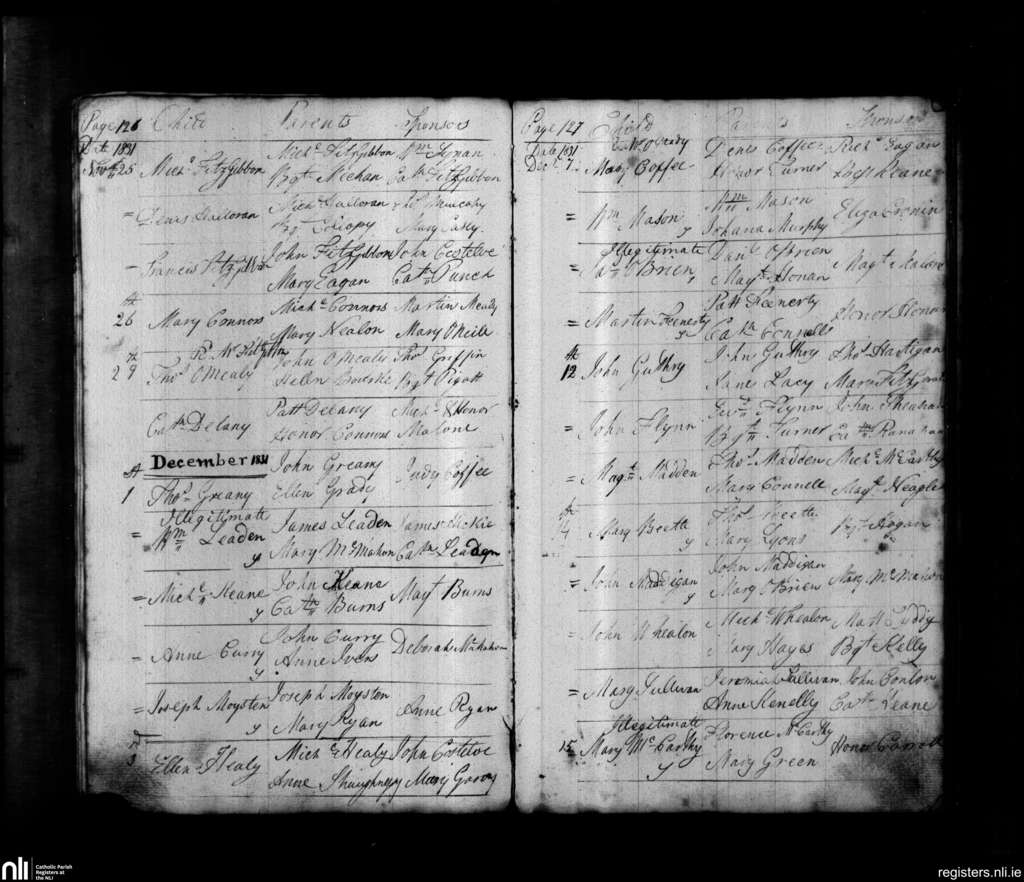 Page 126 Child Parents Sponsors
Date 1831
Novbr 25 Michl FitzGibbon Michl FitzGibbon Wm
Bgt Meehan Cath FitzGibbon
= Denis Halloran Michl Halloran
Bgt Mary
= Francis FitzGibbon John FitzGibbon John Costeloe
Mary Eagan Cath Punch
th
26 Mary Connors Michl Connors Martin Mealy
Mary Nealon Mary O'Neill
th
29 Thos O'Mealy John O'Mealy Thos Griffin
Helen Bourke Bgt Pigott
Cath Delany Patt Delany Michl & Honor
Honor Connors Malone
December 1831
st
1 Thos Greany John Greany Judy Coffee
Ellen Grady
Illegitimate
= Wm Leaden James Leaden James Hickie
y Mary McMahon Cath Leaden
= Michl Keane John Keane Magt Burns
y Cath Burns
= Anne Curry John Curry Deborah McMahon
y Anne Ivers
= Joseph Moysten Joseph Moysten Anne Ryan
y Mary Ryan
3d Ellen Healy Michl Healy John Costeloe
Anne Shaughnessy Mary
Page 127 Child Sponsors
Date 1831
Decr 7 Mary Coffee Denis Coffee Richd Eagan
Honor Turner Bess Keane
= Wm Mason Wm Mason Eliza Cronin
y Johana Murphy
Illegitimate
= O'Brien Danl O'Brien Magt
Magt Honan
= Martin Feenerty Patt Feenerty Honor
Cath Connells
th
12 John Guthry John Guthry Thos Hartigan
Jane Lacy Mary
= John Flynn Flynn John
Bgt Turner Cath
= Magt Madden Thos Madden Michl McCarthy
Mary Connell Magt
th
14 Mary Beette Thos Beette Bgt Hogan
y Mary Lyons
= John Maddigan John Maddigan Mary McMahon
y Mary O'Brien
= John Whealon Michl Whealon Matt Cuddy
Mary Hayes Bgt Kelly
= Mary Sullivan Jeremiah Sullivan John Conlon
Anne Kenelly Cath Keane
Illegitimate
15 Mary McCarthy Florence McCarthy Honor
y Mary Green
nli Catholic Parish
Registers at
the NLI
registers.nli.ie